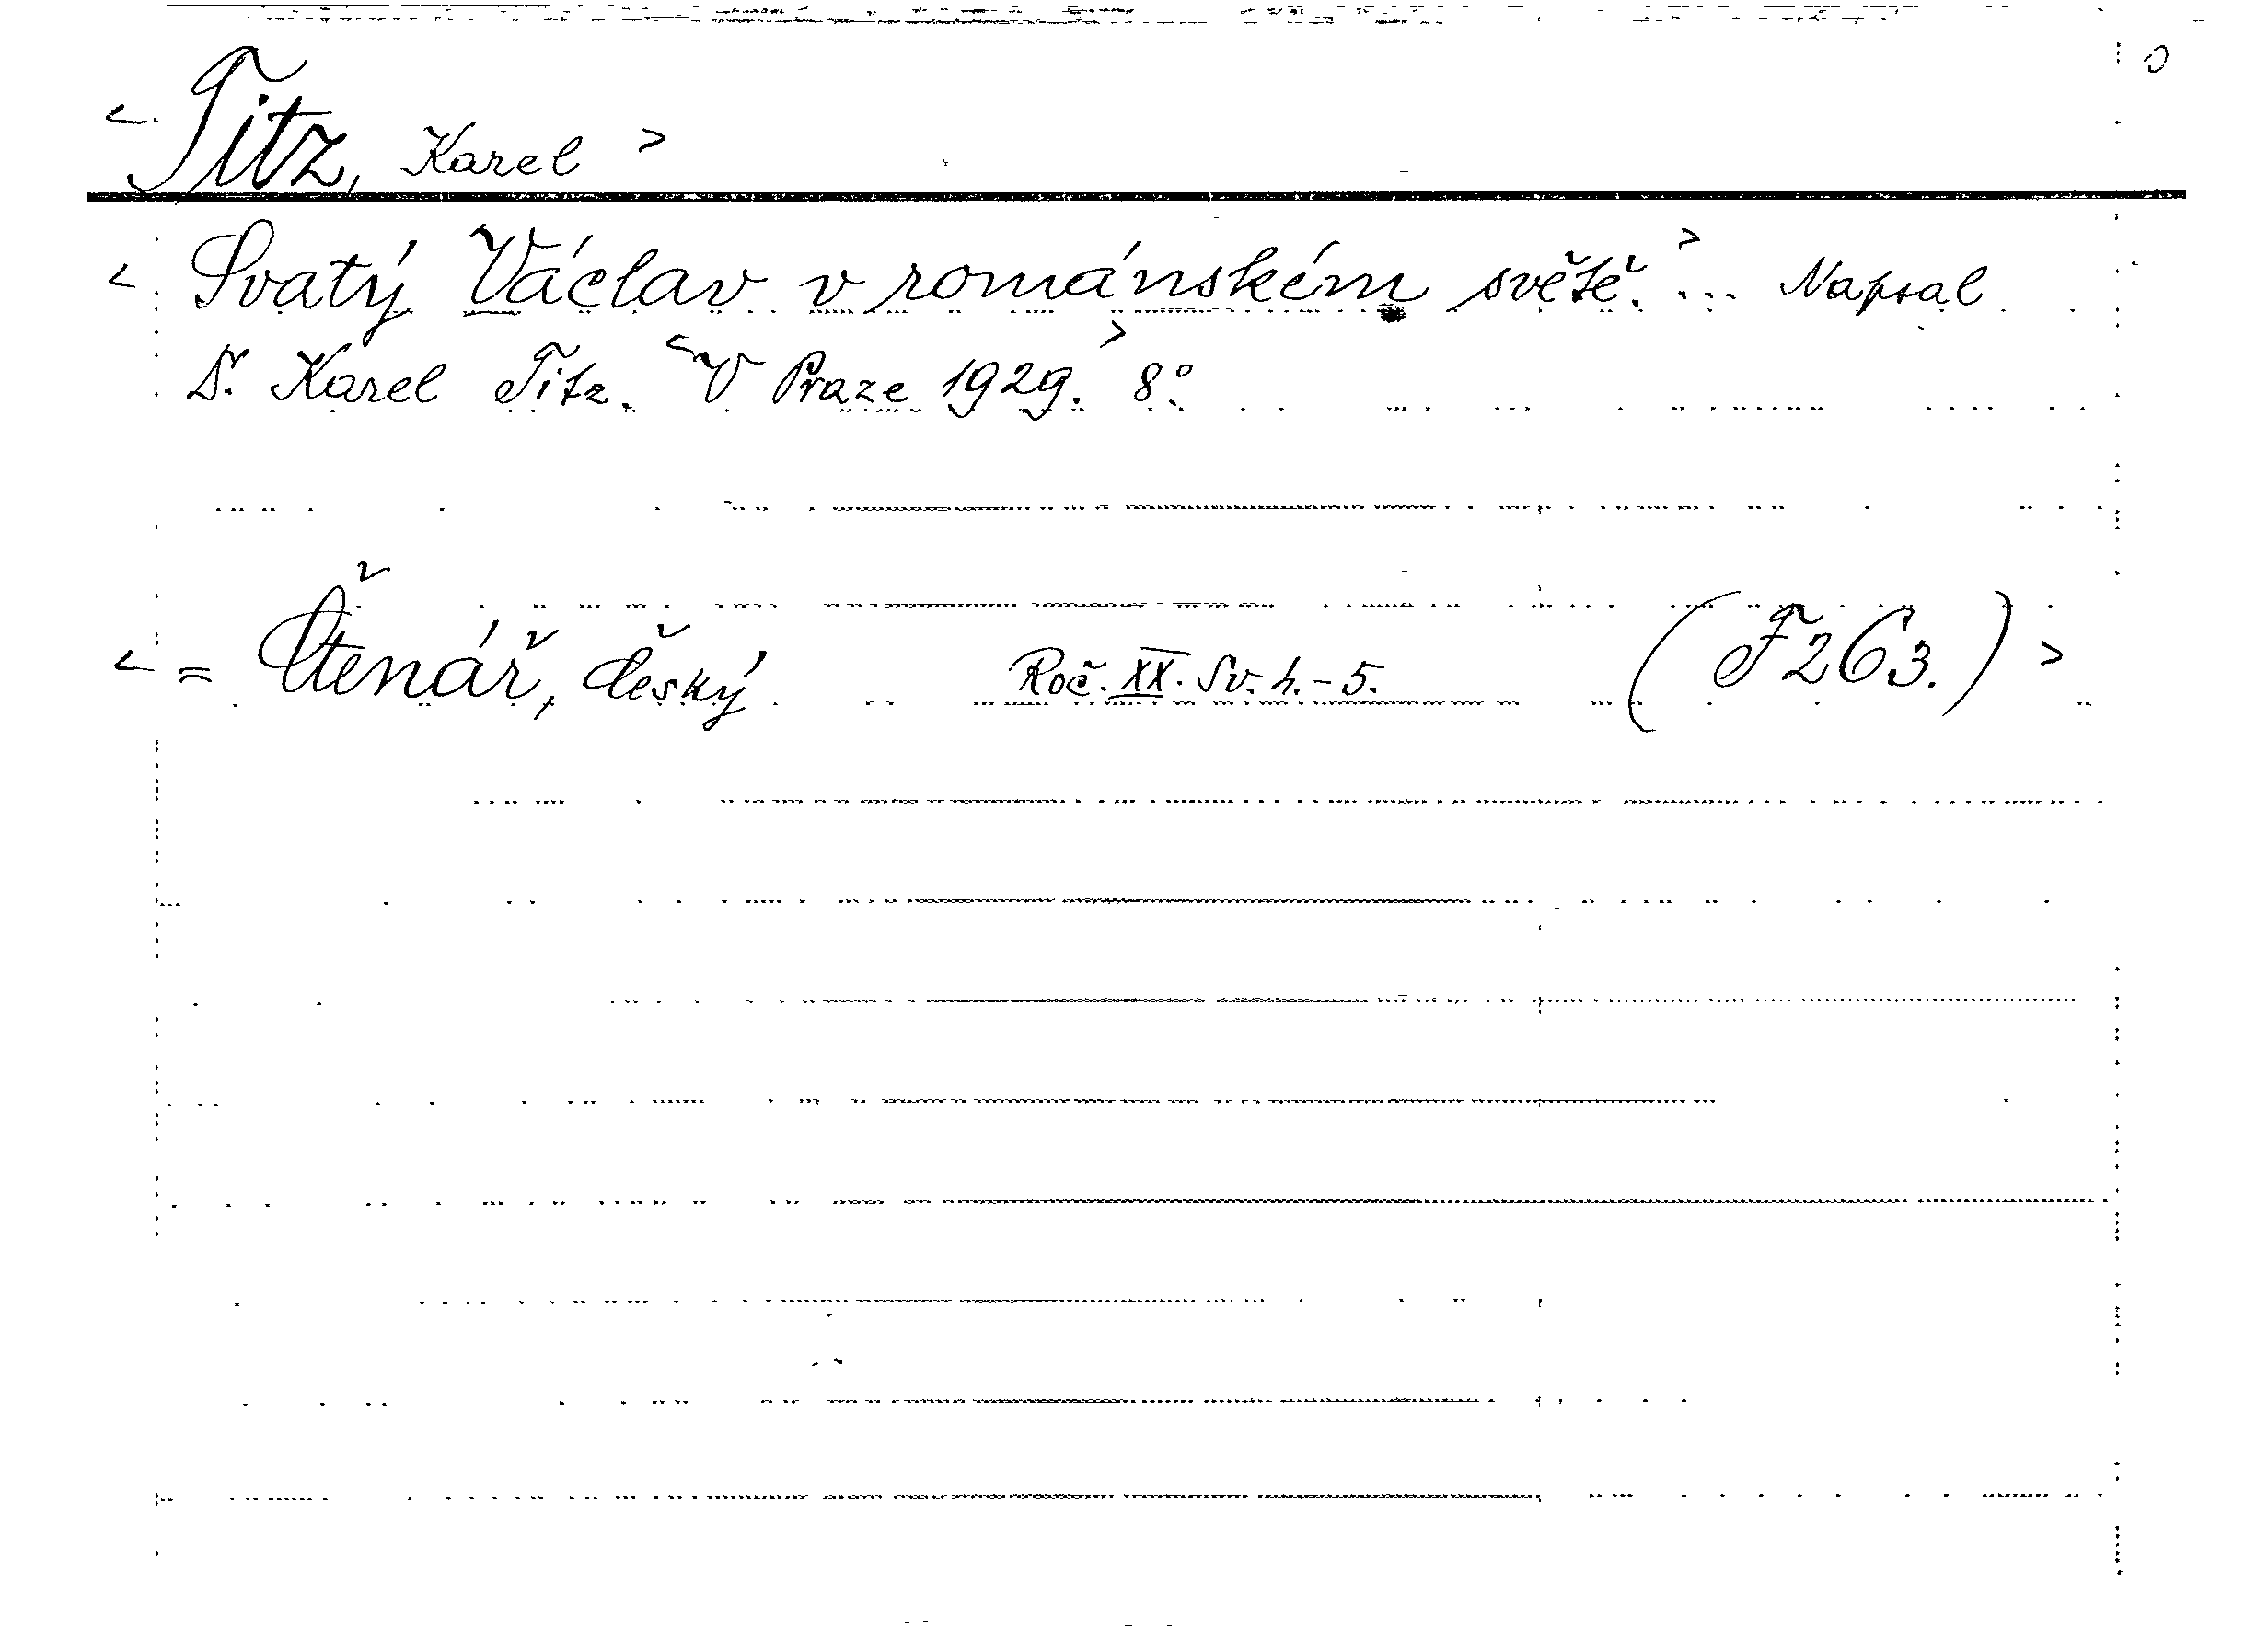 < Titz, Karel >
< Svatý Václav v románském světě. > ... Napsal
Dr. Karel Titz. < V Praze 1929. > 8°.
< = Čtenář, český Roč. XX. Sv. 4.-5. (F263.) >